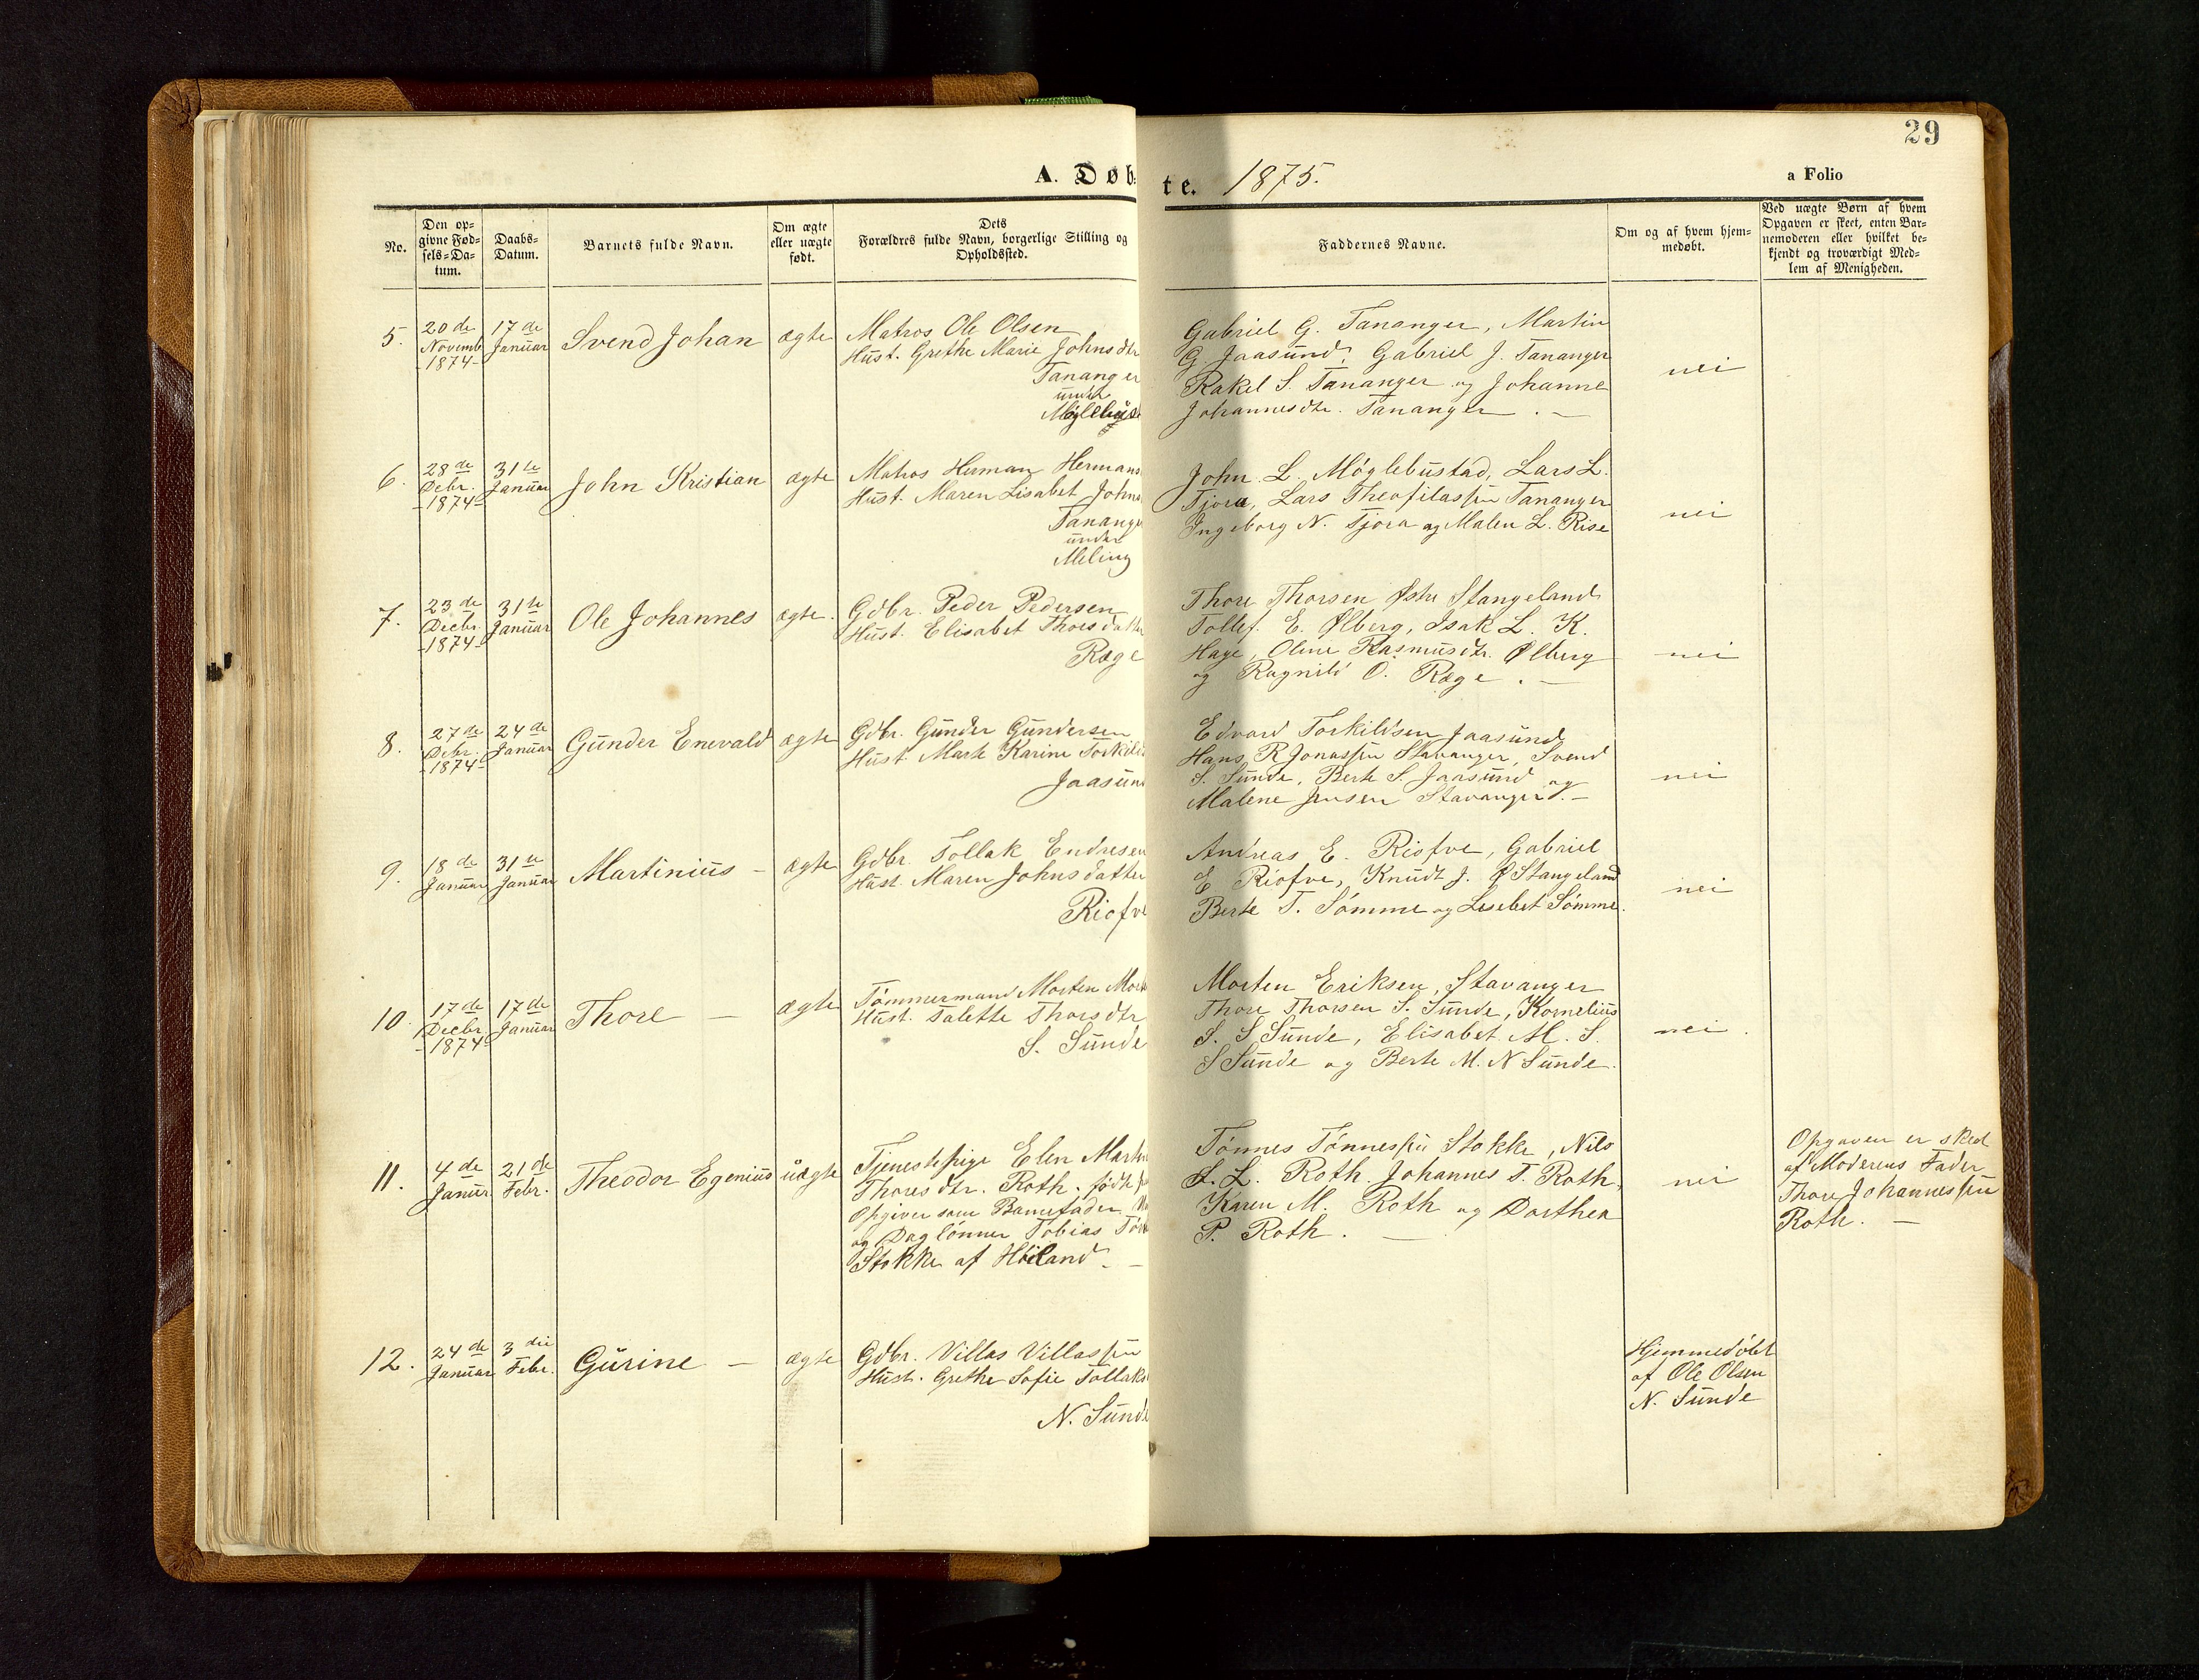 29
A. Døb-
te. 1875.
a Folio
No.
Den op-
givne Fød-
sels-Da-
tum.
Daabs-
Datum.
Barnets fulde Navn.
Om ægte
eller uægte
født.
Dets
Forældres fulde Navn, borgerlige Stilling og
Opholdssted.
Faddernes Navne.
Om og af hvem hjem-
medøbt.
Ved uægte Børn af hvem
Opgaven er skeet, enten Bar-
nemoderen eller hvilket be-
kjendt og troværdigt Med-
lem af Menigheden.
5.
20de
Novemb
-1874-
17de
Januar
Svend Johan
ægte
Matros Ole Olsen
Hust. Grethe Marie Johnsdtr
Tananger
under
Gabriel G. Tananger, Martin
G. Jaasund, Gabriel J. Tananger
Rakel S. Tananger og Johanne
Johannesdtr. Tananger . —
nei
6.
28de
Debr.
-1874-
31te
Januar
John Kristian
ægte
Matros Herman Hermans
Hust. Maren Lisabet Johns
Tanange
under
Meling
John L. Møglebustad, Lars L.
Tjora, Lars Theofilassen Tananger
Ingeborg N. Tjora og Malen L. Rise
nei
7.
23de
Decbr.
-1874-
31te
Januar
Ole Johannes
ægte.
Gdbr. Peder Pedersen
Hust. Elisabet Thorsdatter
Ræge
Thore Thorsen Østre Stangeland
Tollef. E. Ølberg, Isak L. K.
Haye, Oline Rasmusdtr. Ølberg
og Ragnild O. Ræge . —
nei
8.
27de
Debr.
-1874-
24de
Januar
Gunder Enevald
ægte
Gdbr. Gunder Gundersen
Hust. Marte Karine Torkilds
Jaasund
Edvard Torkildsen Jaasund
Hans R Jonassen Stavanger, Svend
S. Sunde, Berte S. Jaasund og
Malene Jensen Stavanger. —
nei
9.
18de
Januar
31te
Januar
Martinius —
ægte
Gdbr. Tollak Endresen
Hust. Maren Johnsdatter
Riofve
Andreas E. Riofve, Gabriel
E Riofve, Knudt J. Ø Stangeland
Berte T. Sømme og Lisebet Sømme.
nei
10.
17de
Decbr.
-1874-
17de
Januar
Thore —
ægte
Tømmermand Morten Mort
Hust. Talette Thorsdtr
S. Sunde
Morten Eriksen, Stavanger
Thore Thorsen S. Sunde, Kornelius
S. S Sunde, Elisabet M. S.
S Sunde og Berte M. N Sunde.
nei .
11.
4de
Januar
21de
Febr.
Theodor Egenius
uægte
Tjenestepige Elen Marthe
Thoresdtr. Roth. født
Opgiver som Barnefader
og Daglønner Tobias Tør
Stokke af Høiland. —
Tønnes Tønnessen Stokke, Nils
L. L. Roth. Johannes T. Roth,
Karen M. Roth og Dorthea
P. Roth. —
nei
Opgaven er sked
af Moderens Fader
Thore Johannessen
Roth. —
12.
24de
Januar
3die
Febr.
Gurine —
ægte
Gdbr. Villas Villassen
Hust. Grethe Sofie Tollaks
N. Sunde
Hjemmedøbt
af Ole Olsen
N. Sunde